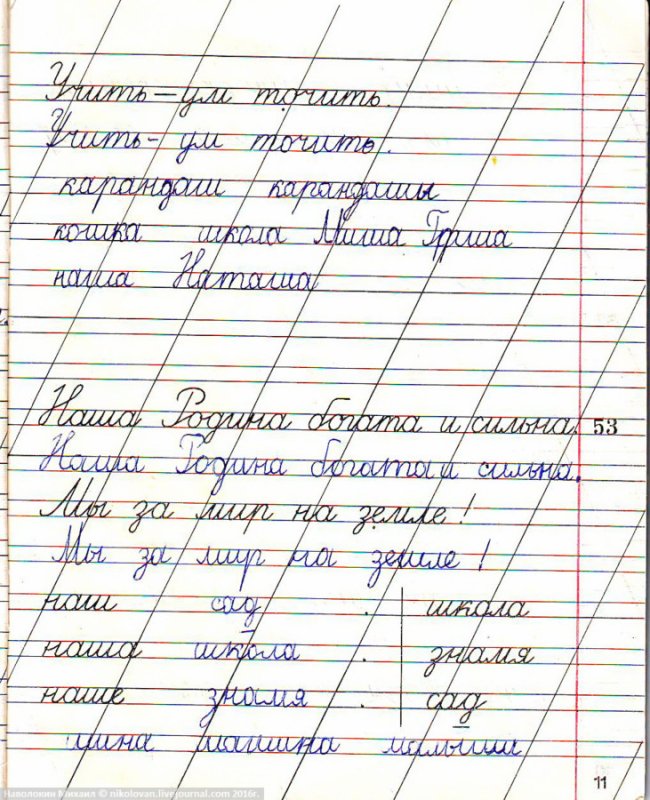 Учить – ум точить.
Учить - ум точить.
карандаш карандашы
кошка школа Миша Гриша
наша Наташа
Наша Родина богата и сильна. 53
Наша Родина богата и сильна.
Мы за мир на земле!
Мы за мир на земле!
наш сад . школа
наша школа . знамя
наше знамя . сад
шина машина малыши
11
Наволокин Михаил © nikolovan.livejournal.com 2016г.